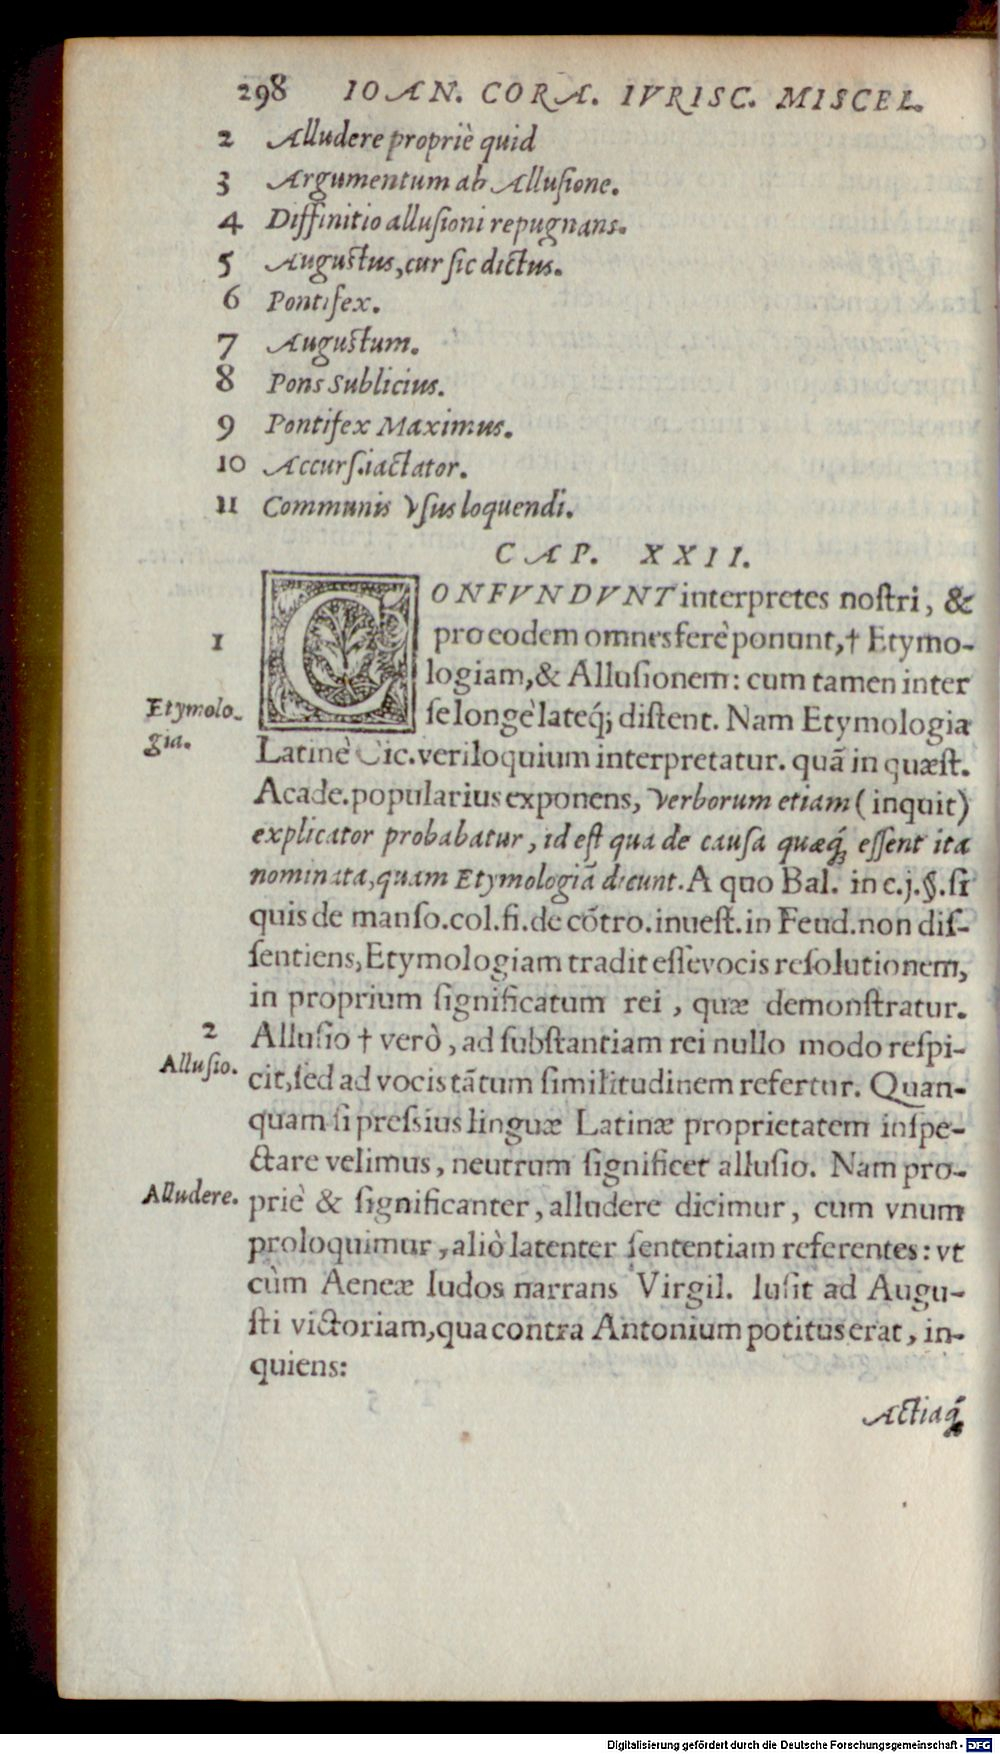 298 IOAN. CORA. IVRISC. MISCEL.
2 Alludere propriè quid
3 Argumentum ab Allusione.
4 Diffinitio allusioni repugnans.
5 Augustus, cur sic dictus.
6 Pontifex.
7 Augustum.
8 Pons Sublicius.
9 Pontifex Maximus.
10 Accurs. iactator.
11 Communis vsus loquendi.
CAP. XXII.
CONFVNDVNT interpretes nostri, &
1 pro eodem omnes ferè ponunt, † Etymo-
logiam, & Allusionem: cum tamen inter
Etymolo- se longè lateq́; distent. Nam Etymologia
gia. Latinè Cic. veriloquium interpretatur. quã in quæst.
Acade. popularius exponens, verborum etiam (inquit)
explicator probabatur, id est qua de causa quæq́; essent ita
nominata, quam Etymologiã dicunt. A quo Bal. in c. j. §. si
quis de manso. col. fi. de cõtro. inuest. in Feud. non dis-
sentiens, Etymologiam tradit esse vocis resolutionem,
in proprium significatum rei, quæ demonstratur.
2 Allusio † verò, ad substantiam rei nullo modo respi-
Allusio. cit, sed ad vocis tãtum similitudinem refertur. Quan-
quam si pressius linguæ Latinæ proprietatem inspe-
ctare velimus, neutrum significet allusio. Nam pro-
Alludere. priè & significanter, alludere dicimur, cum vnum
proloquimur, aliò latenter sententiam referentes: vt
cùm Aeneæ ludos narrans Virgil. lusit ad Augu-
sti victoriam, qua contra Antonium potitus erat, in-
quiens:
Actiaq́;
Digitalisierung gefördert durch die Deutsche Forschungsgemeinschaft - DFG